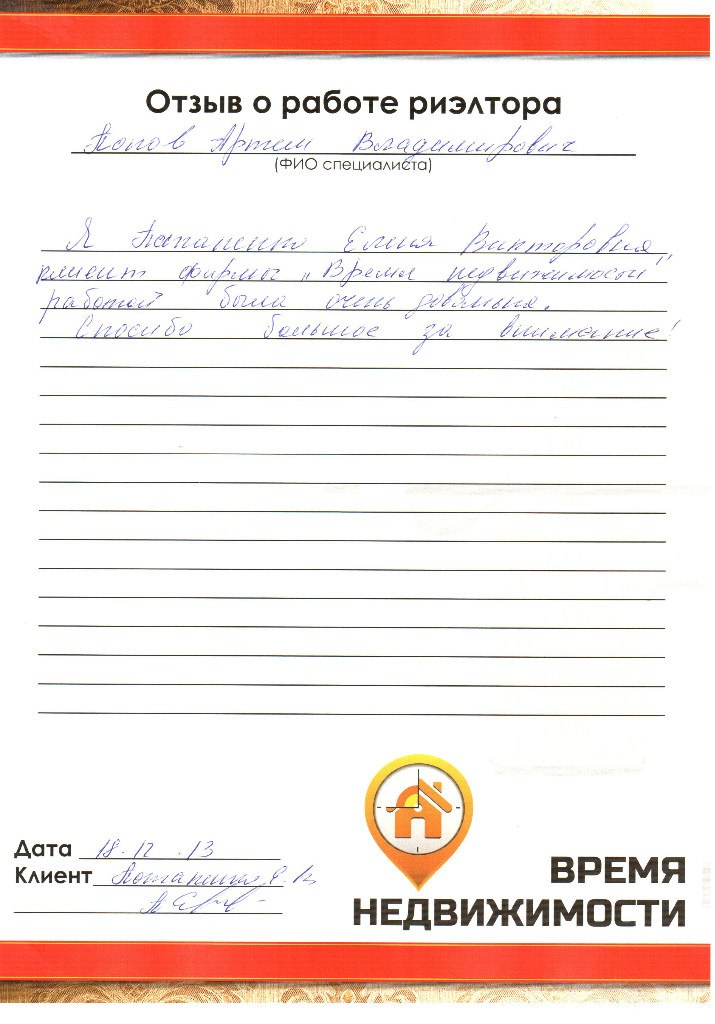 Отзыв о работе риэлтора
Попов Артем Владимирович
(ФИО специалиста)
Я Потапенко Елена Викторовна,
клиент фирмы „Время недвижимости"
работой была очень довольна.
Спасибо большое за внимание!
Дата 18.12.13
Клиент Потапенко Е.В
ВРЕМЯ
НЕДВИЖИМОСТИ